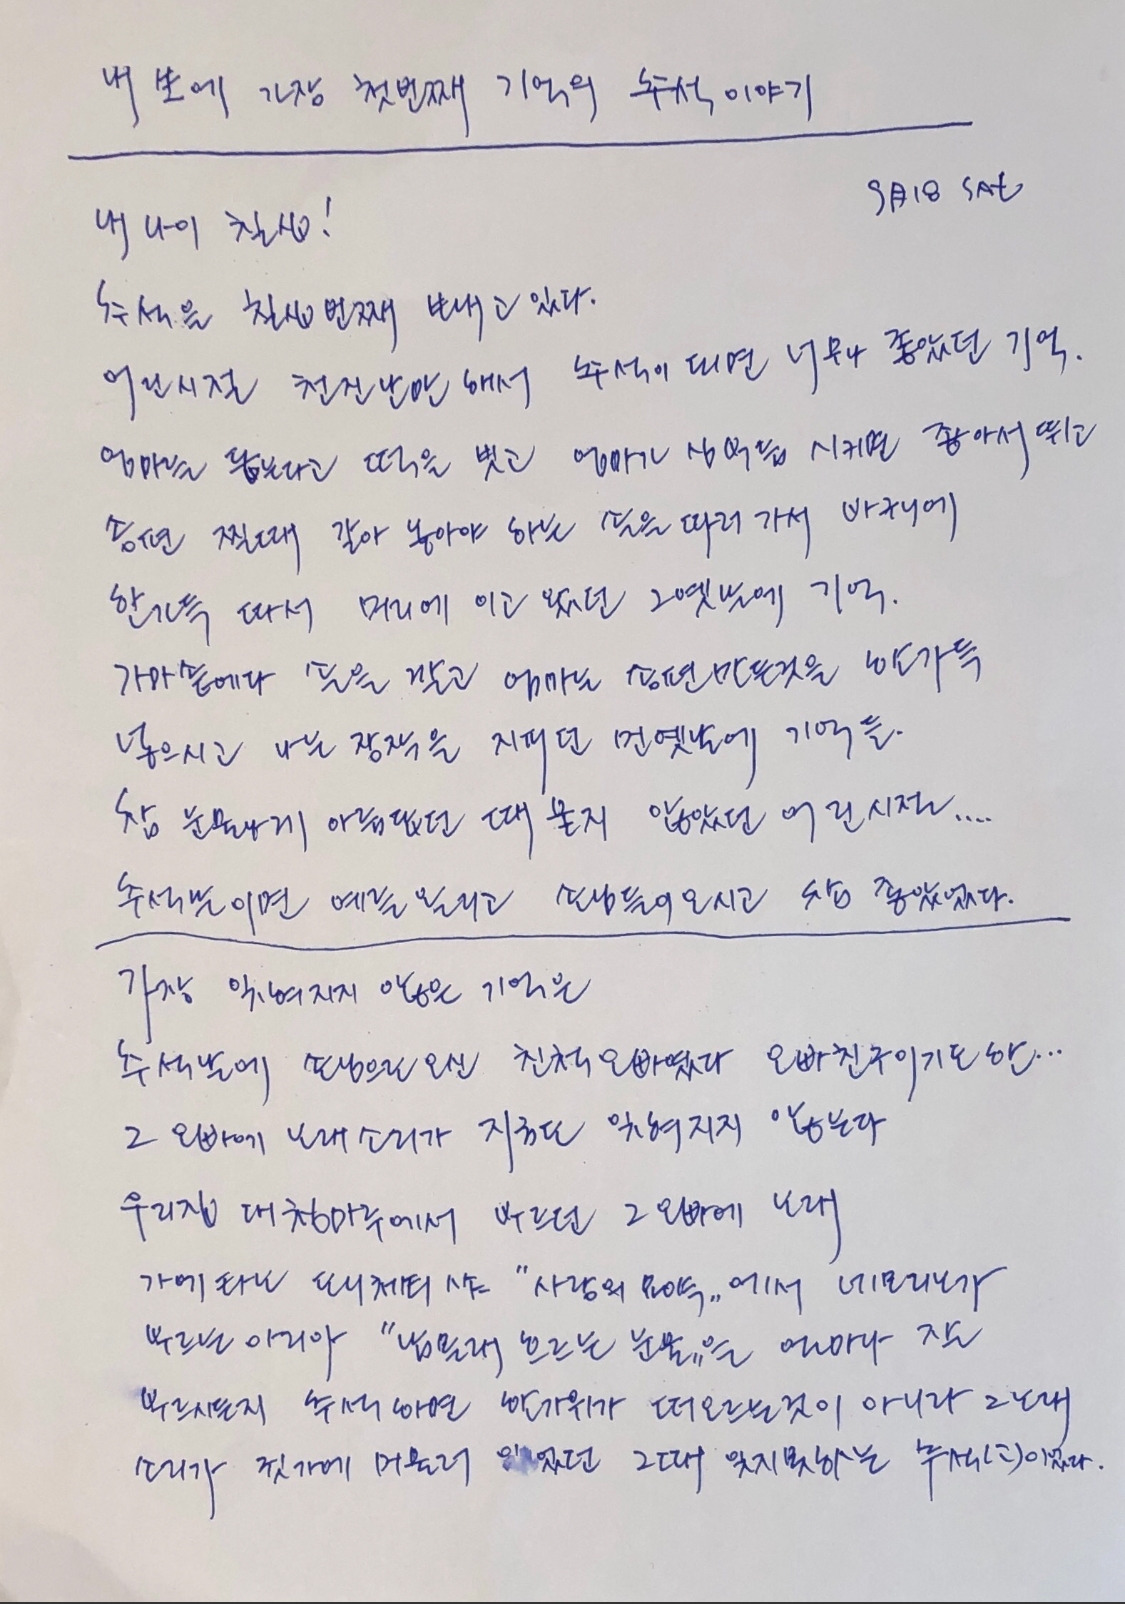 내 生에 가장 첫번째 기억의 추석이야기
9月18 SAt
내 나이 칠십!
추석을 칠십번째 보내고 있다.
어린시절 천진난만해서 추석이 되면 너무나 좋았던 기억.
엄마는 떡을 빚고 엄마가 심부름 시키면 좋아서 뛰고
송편 찔때 깔아 놓아야 하는 솔을 따러 가서 바구니에
한가득 따서 머리에 이고 왔던 그옛날에 기억.
가마솥에다 솔을 깔고 엄마는 송편만든것을 한가득
넣으시고 나는 장작을 지피던 먼옛날에 기억들.
참 눈물나게 아름답던 때묻지 않았던 어린시절....
추석날이면 예를올리고 손님들이오시고 참 좋았었다.
가장 잊혀지지 않은 기억은
추석날에 손님으로 오신 친척오빠였다 오빠친구이기도한...
그 오빠에 노래소리가 지금도 잊혀지지 않는다
우리집 대청마루에서 부르던 그오빠에 노래
가에타노 도니체티 "사랑의 묘약"에서 네모리노가
부르는 아리아 "남몰래 흐르는 눈물"을 얼마나 잘
부르시든지 추석하면 한가위가 떠오르는것이 아니라 그노래
소리가 귓가에 머물러 있었던 그때 잊지못하는 추석(고)이였다.